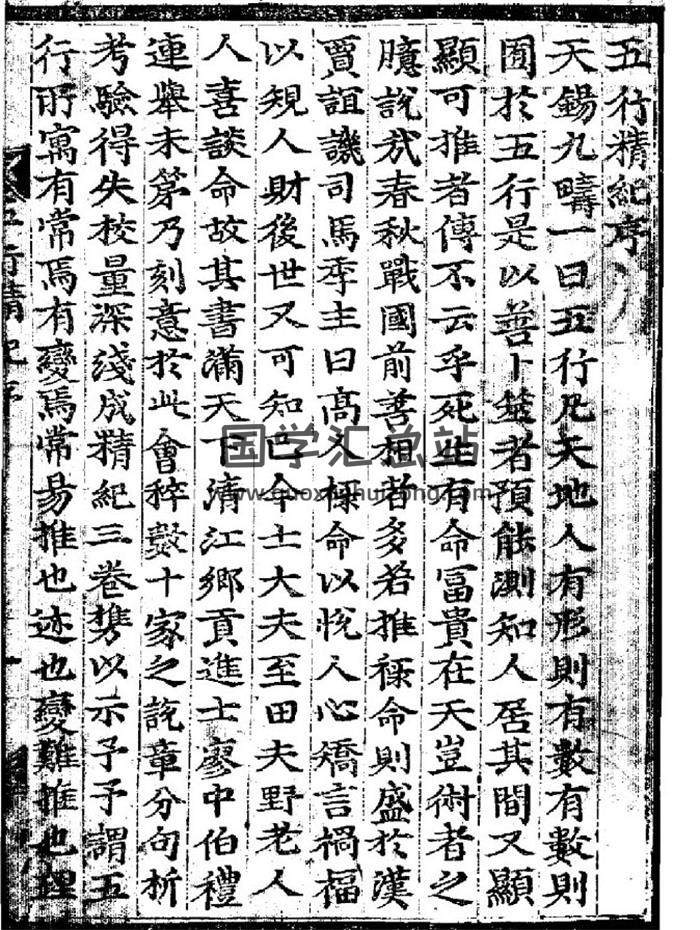 五行精紀序
天錫九疇一曰五行凡天地人有形則有數有數則
囿於五行是以善卜筮者預能測知人居其間又顯
顯可推者傳不云乎死生有命冨貴在天豈術者之
臆說㢤春秋戰國前善相者多若推祿命則盛於漢
賈誼譏司馬季主曰髙人祿命以恱人心矯言禍福
以規人財後世又可知巳今士大夫至田夫野老人
人喜談命故其書滿天下清江鄉貢進士廖中伯禮
連舉未第乃刻意於此會稡數十家之說章分句析
考驗得失校量深淺成精紀三卷携以示予予謂五
行所寓有常焉有變焉常易推也迹也變難推也理
五行精紀序
国学汇总站
www.guoxuehuizong.com